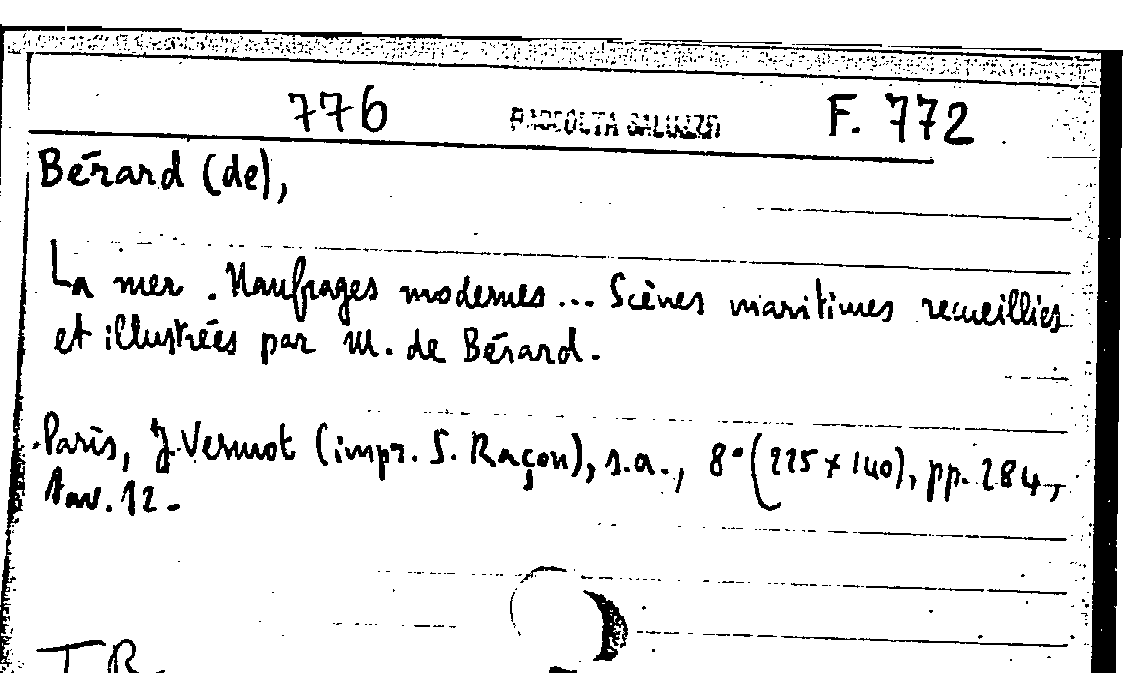 776 RACCOLTA SALUZZO F. 772
Bérard (de),
La mer. Naufrages modernes... Scènes maritimes recueillies
et illustrées par M. de Bérard.
Paris, J. Vermot (impr. S. Raçon), s.a., 8° (225 x 140), pp. 284,
tav. 12.
T.B.